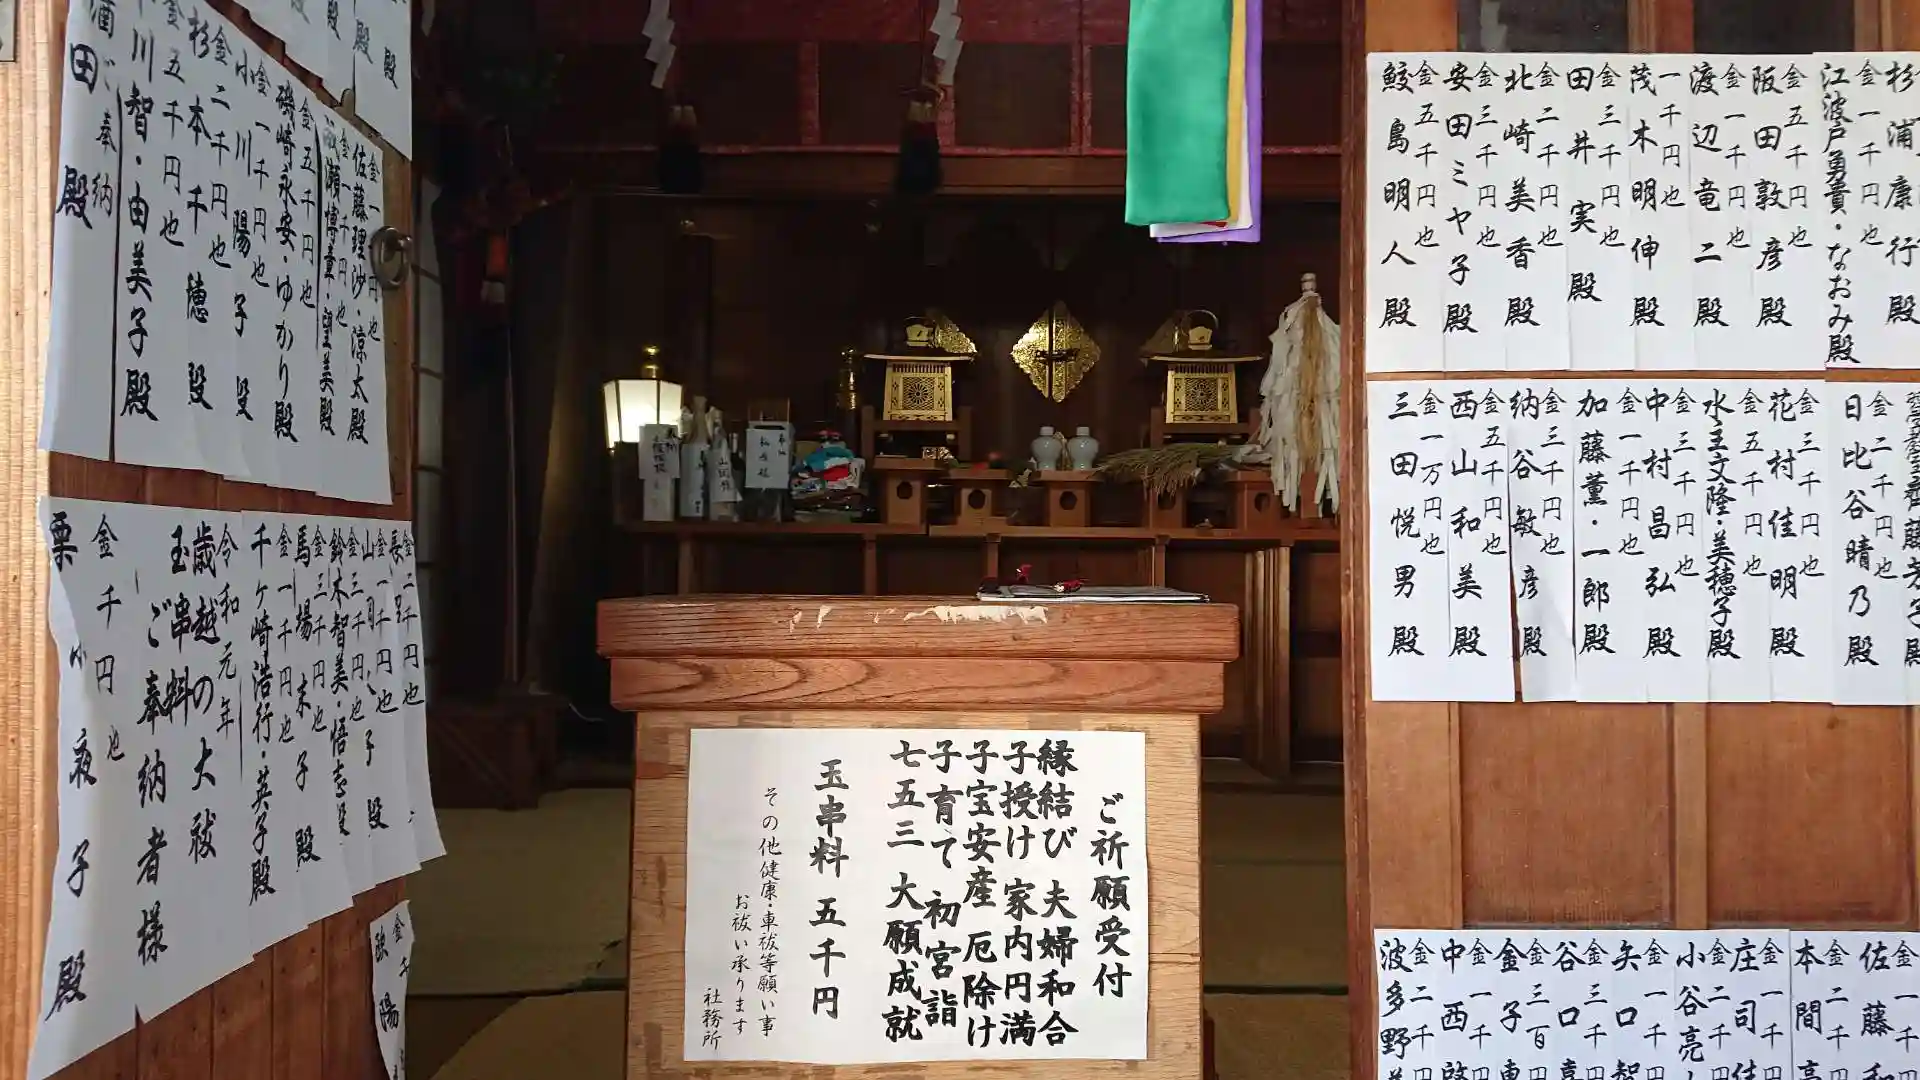 ご祈願受付
縁結び 夫婦和合
子授け 家内円満
子宝安産 厄除け
子育て 初宮詣
七五三 大願成就
玉串料 五千円
その他健康・車祓等願い事
お祓い承ります
社務所
杉浦康行 殿
金一千円也
江波戸勇貴・なおみ殿
金五千円也
阪田敦彦 殿
金一千円也
渡辺竜二 殿
一千円也
茂木明伸 殿
金三千円也
田井実 殿
金二千円也
北崎美香 殿
金三千円也
安田ミヤ子 殿
金五千円也
鮫島明人 殿
金二千円也
日比谷晴乃 殿
金三千円也
花村佳明 殿
金五千円也
金三千円也
中村昌弘 殿
金一千円也
加藤薫・一郎 殿
金三千円也
納谷敏彦 殿
金五千円也
西山和美 殿
金一万円也
三田悦男 殿
佐藤
金二千円
本間
金一千円
庄司
金二千円
小谷亮
金一千円
矢口
金三千円
谷口
金三百円
金子
金一千円
中西
金二千円
波多野
金一千円也
佐藤理沙・涼太 殿
金一千円也
金五千円也
磯崎永安・ゆかり殿
金一千円也
小川陽子 殿
金二千円也
杉本千穂 殿
金五千円也
川智・由美子殿
ご奉納
田 殿
金二千円也
金一千円也
金三千円也
鈴木智美・悟志殿
金三千円也
馬場末子 殿
金一千円也
千ヶ崎浩行・英子殿
令和元年
歳越の大祓
玉串料
ご奉納者様
金千円也
栗小夜子 殿